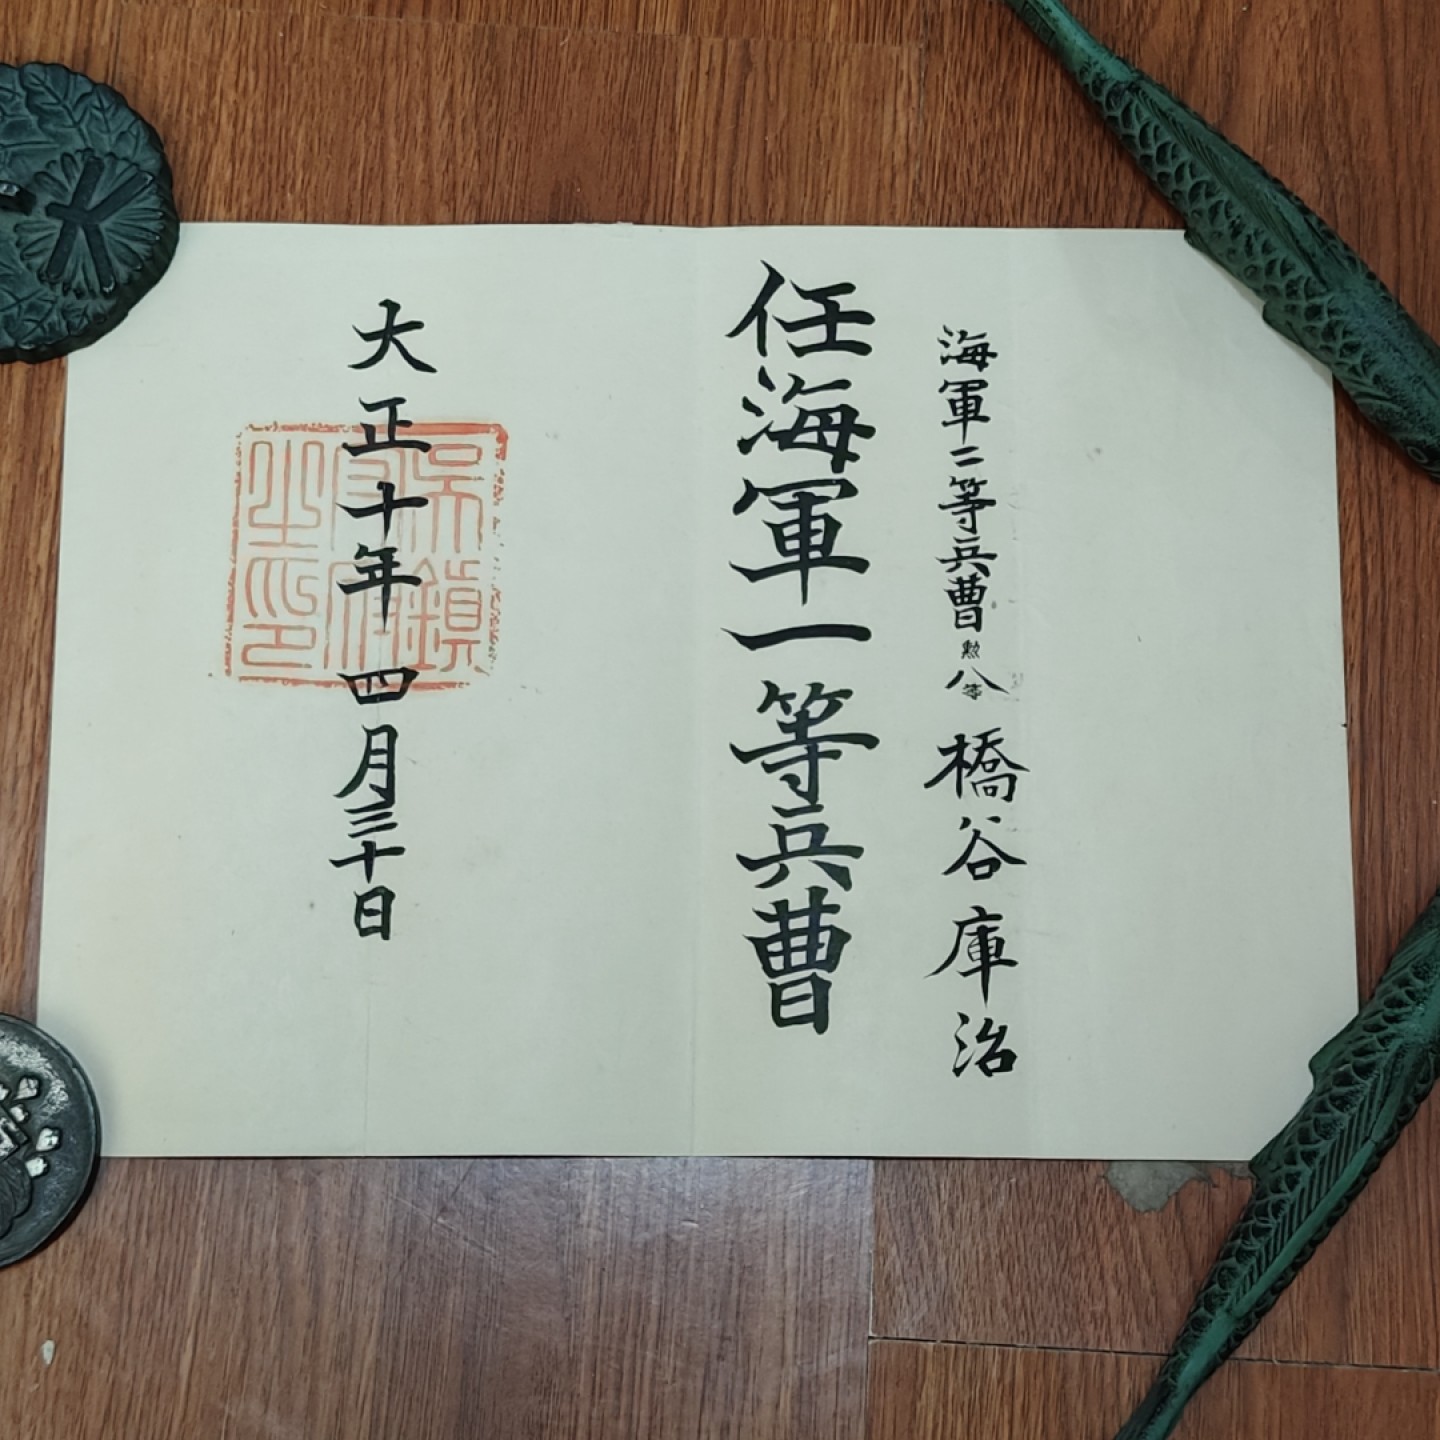 海軍二等兵曹勲八等 橋谷庫治
任海軍一等兵曹
大正十年四月三十日
呉鎮府之印